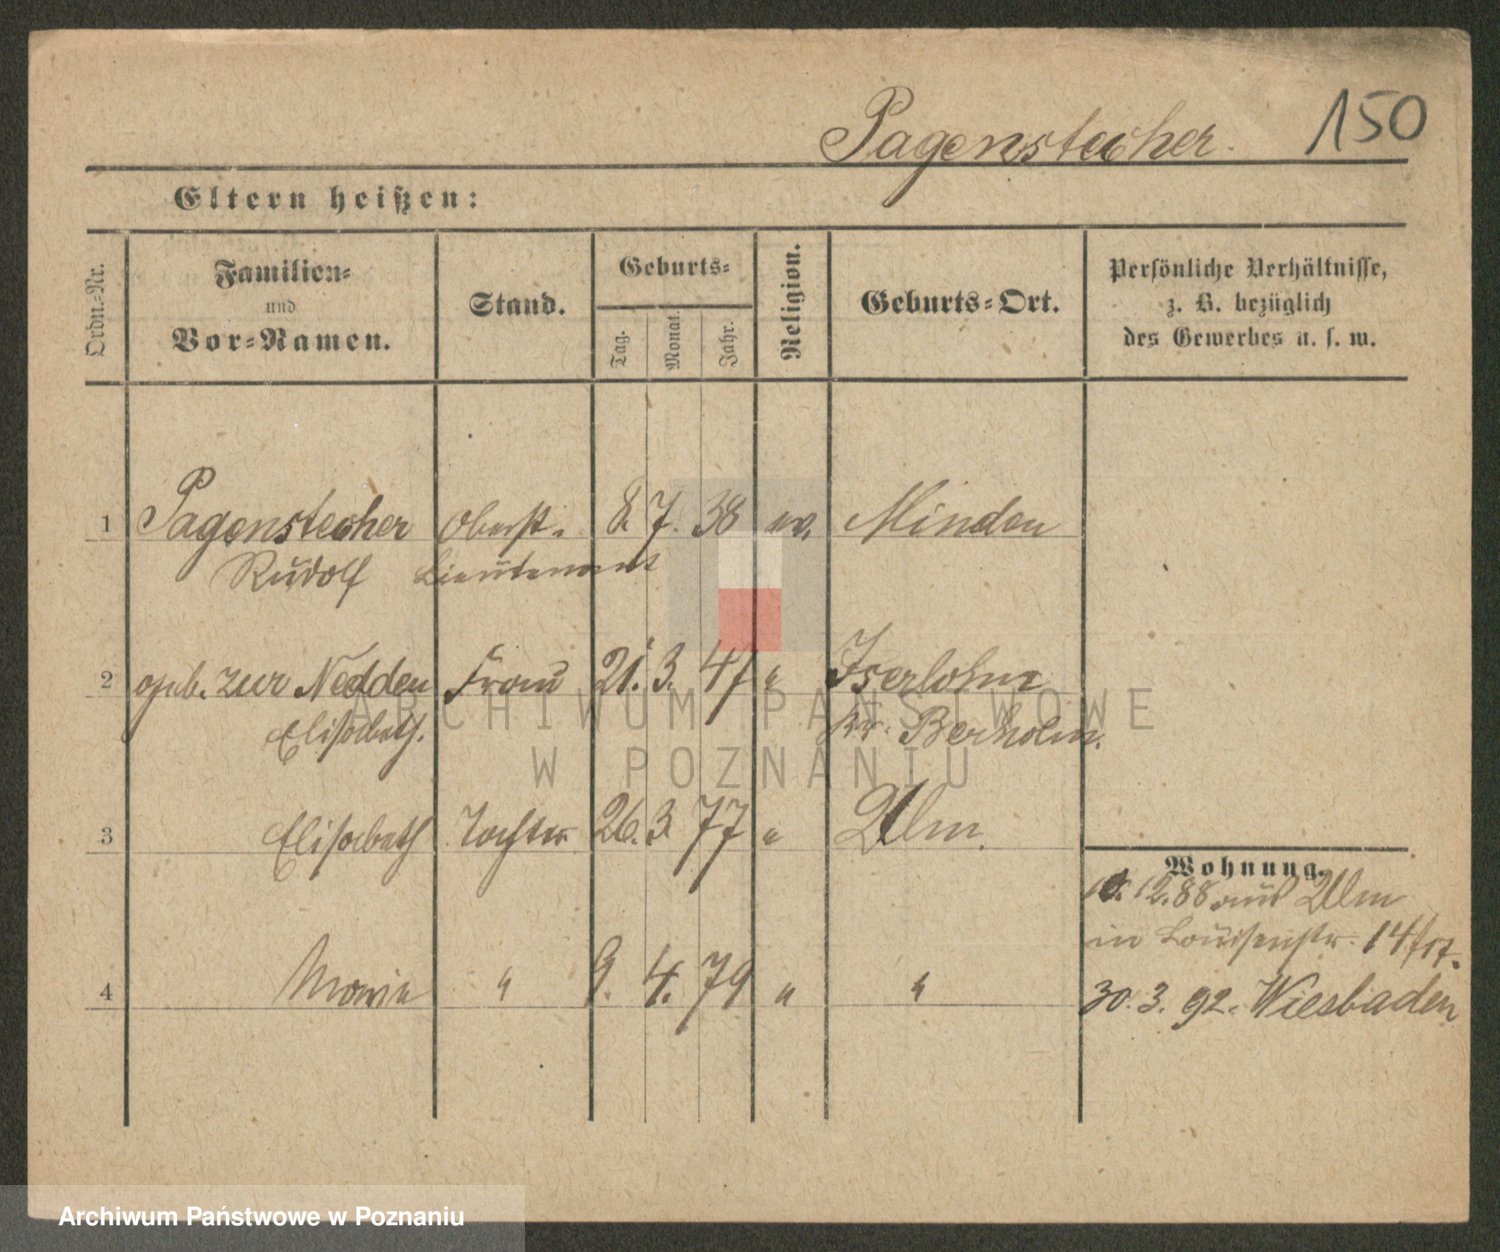 Pagenstecher. 150
Eltern heißen:
Ordn.-Nr.
Familien-
und
Vor-Namen.
Stand.
Geburts-
Tag.
Monat.
Jahr.
Religion.
Geburts-Ort.
Persönliche Verhältnisse,
z. B. bezüglich
des Gewerbes u. s. w.
1 Pagenstecher Oberst- 8. 7. 38 ev. Minden
Rudolf Lieutenant
2 geb. zur Nedden Frau 21. 3. 47 " Iserlohn
Elisabeth. Kr.
3 Elisabeth Tochter 26. 3. 77 " Ulm.
Wohnung.
12.88 aus Ulm
in Louisenstr. 14
4 Marie " 9. 4. 79 " "
30. 3. 92. Wiesbaden
ARCHIWUM PAŃSTWOWE
W POZNANIU
Archiwum Państwowe w Poznaniu